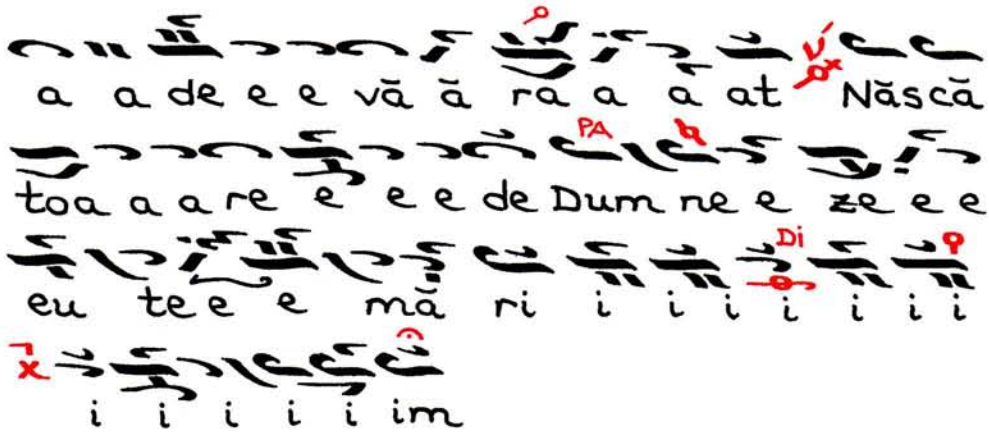 a a de e e vă ă ra a a at Născă
PA
toa a a re e e e de Dum ne e ze e e
Di
eu te e e mă ri i i i i i i i
i i i i i im